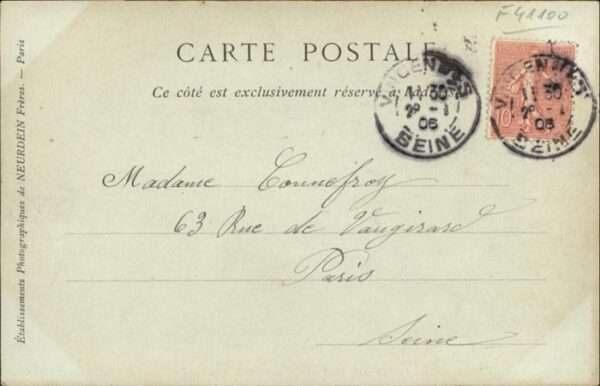 F41100
CARTE POSTALE
Ce côté est exclusivement réservé à l'adresse
VINCENNES
11 30
29 - 1
06
SEINE
VINCENNES
11 30
29 - 1
06
SEINE
10
Madame Connefroy
63 Rue de Vaugirard
Paris
Seine
Établissements Photographiques de NEURDEIN Frères. — Paris